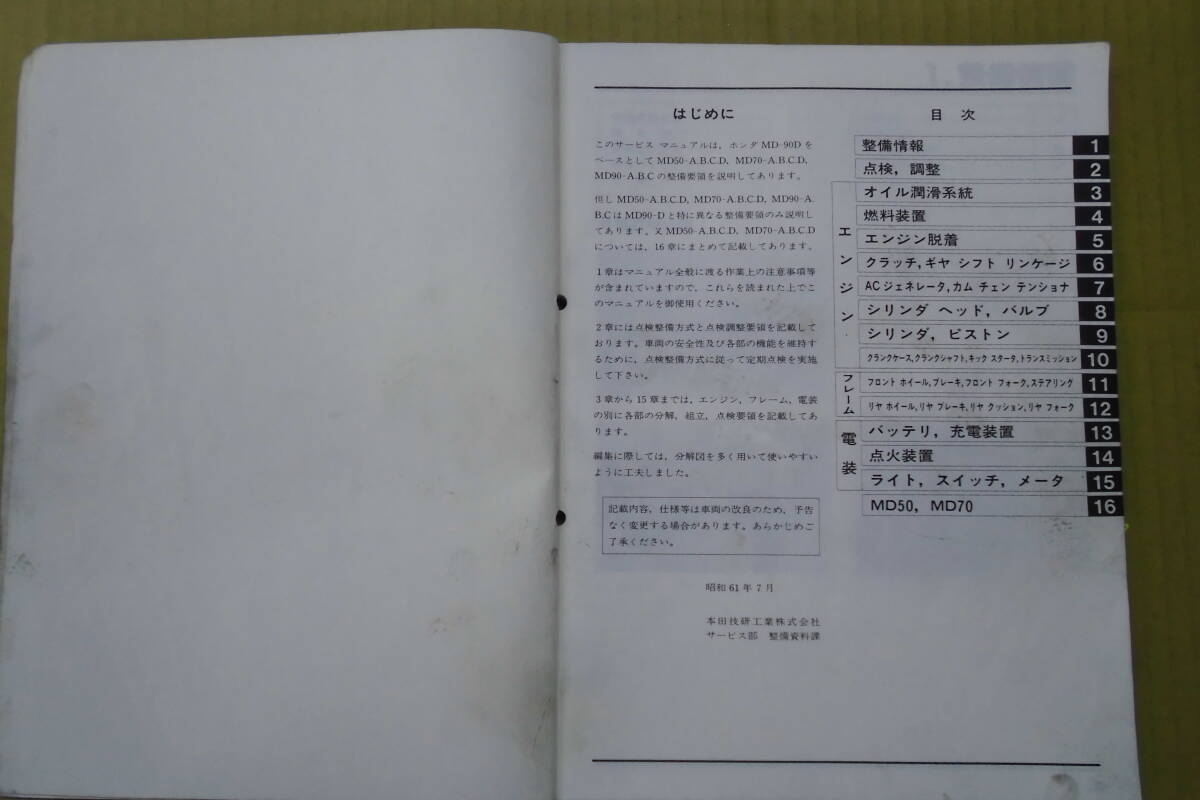 はじめに
このサービス マニュアルは、ホンダ MD-90D を
ベースとして MD50-A.B.C.D, MD70-A.B.C.D,
MD90-A.B.C の整備要領を説明してあります。
但し MD50-A.B.C.D, MD70-A.B.C.D, MD90-A.
B.C は MD90-D と特に異なる整備要領のみ説明し
てあります。又 MD50-A.B.C.D, MD70-A.B.C.D
については、16章にまとめて記載してあります。
1章はマニュアル全般に渡る作業上の注意事項等
が含まれていますので、これらを読まれた上でこ
のマニュアルを御使用ください。
2章には点検整備方式と点検調整要領を記載して
おります。車両の安全性及び各部の機能を維持す
るために、点検整備方式に従って定期点検を実施
して下さい。
3章から15章までは、エンジン、フレーム、電装
の別に各部の分解、組立、点検要領を記載してあ
ります。
編集に際しては、分解図を多く用いて使いやすい
ように工夫しました。
記載内容、仕様等は車両の改良のため、予告
なく変更する場合があります。あらかじめご
了承ください。
昭和 61 年 7 月
本田技研工業株式会社
サービス部 整備資料課
目 次
整備情報 1
点検, 調整 2
エンジン
オイル潤滑系統 3
燃料装置 4
エンジン脱着 5
クラッチ, ギヤ シフト リンケージ 6
ACジェネレータ, カム チェン テンショナ 7
シリンダ ヘッド, バルブ 8
シリンダ, ピストン 9
クランクケース, クランクシャフト, キック スタータ, トランスミッション 10
フレーム
フロント ホイール, ブレーキ, フロント フォーク, ステアリング 11
リヤ ホイール, リヤ ブレーキ, リヤ クッション, リヤ フォーク 12
電装
バッテリ, 充電装置 13
点火装置 14
ライト, スイッチ, メータ 15
MD50, MD70 16